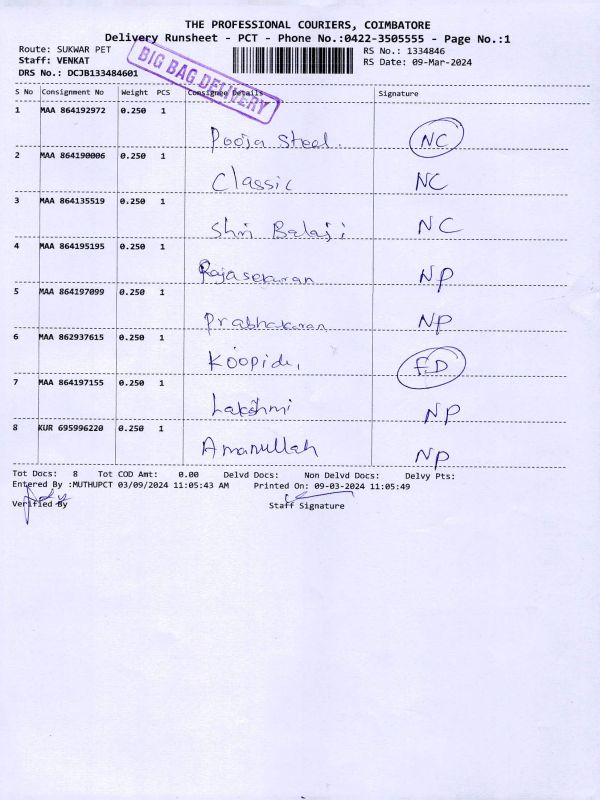 THE PROFESSIONAL COURIERS, COIMBATORE
Delivery Runsheet - PCT - Phone No.:0422-3505555 - Page No.:1
Route: SUKWAR PET RS No.: 1334846
Staff: VENKAT RS Date: 09-Mar-2024
DRS No.: DCJB133484601
BIG BAG DELIVERY
S No Consignment No Weight PCS Consignee Details Signature
1 MAA 864192972 0.250 1 Pooja Steel. NC
2 MAA 864190006 0.250 1 Classic NC
3 MAA 864135519 0.250 1 Shri Balaji NC
4 MAA 864195195 0.250 1 Rajasekaran NP
5 MAA 864197099 0.250 1 Prabhakaran NP
6 MAA 862937615 0.250 1 Koopidu, FD
7 MAA 864197155 0.250 1 Lakshmi NP
8 KUR 695996220 0.250 1 Amanullah NP
Tot Docs: 8 Tot COD Amt: 0.00 Delvd Docs: Non Delvd Docs: Delvy Pts:
Entered By :MUTHUPCT 03/09/2024 11:05:43 AM Printed On: 09-03-2024 11:05:49
Verified By Staff Signature